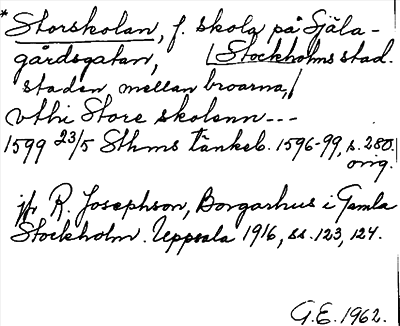 * Storskolan, f. skola på Själa-
gårdsgatan, | Stockholms stad.
staden mellan broarna,|
vthi Store skolenn---
1599 23/5 Sthms tänkeb. 1596-99, s. 280.
orig.
jfr R. Josephson, Borgarhus i Gamla
Stockholm. Uppsala 1916, ss. 123, 124.
G.E. 1962.